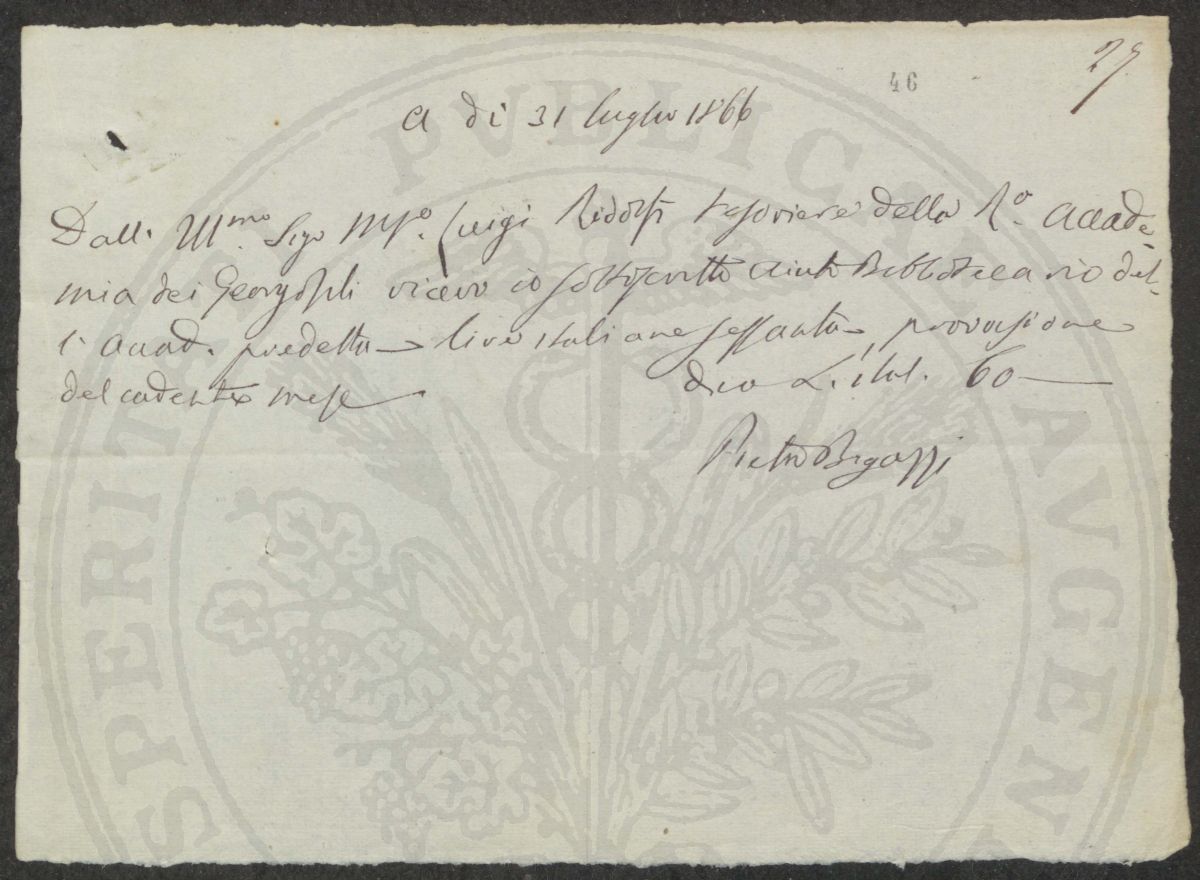 27
46
A dì 31 luglio 1866
Dall' Ill.mo Sigr M.se Luigi Ridolfi tesoriere della Ra. Accade-
mia dei Georgofili ricevo io sottoscritto Aiuto Bibliotecario del-
l' Accad. predetta lire italiane sessanta, provvisione
del cadente mese dico L. ital. 60
Pietro Bigazzi
PROSPERITATI PVBLICAE AVGENDAE